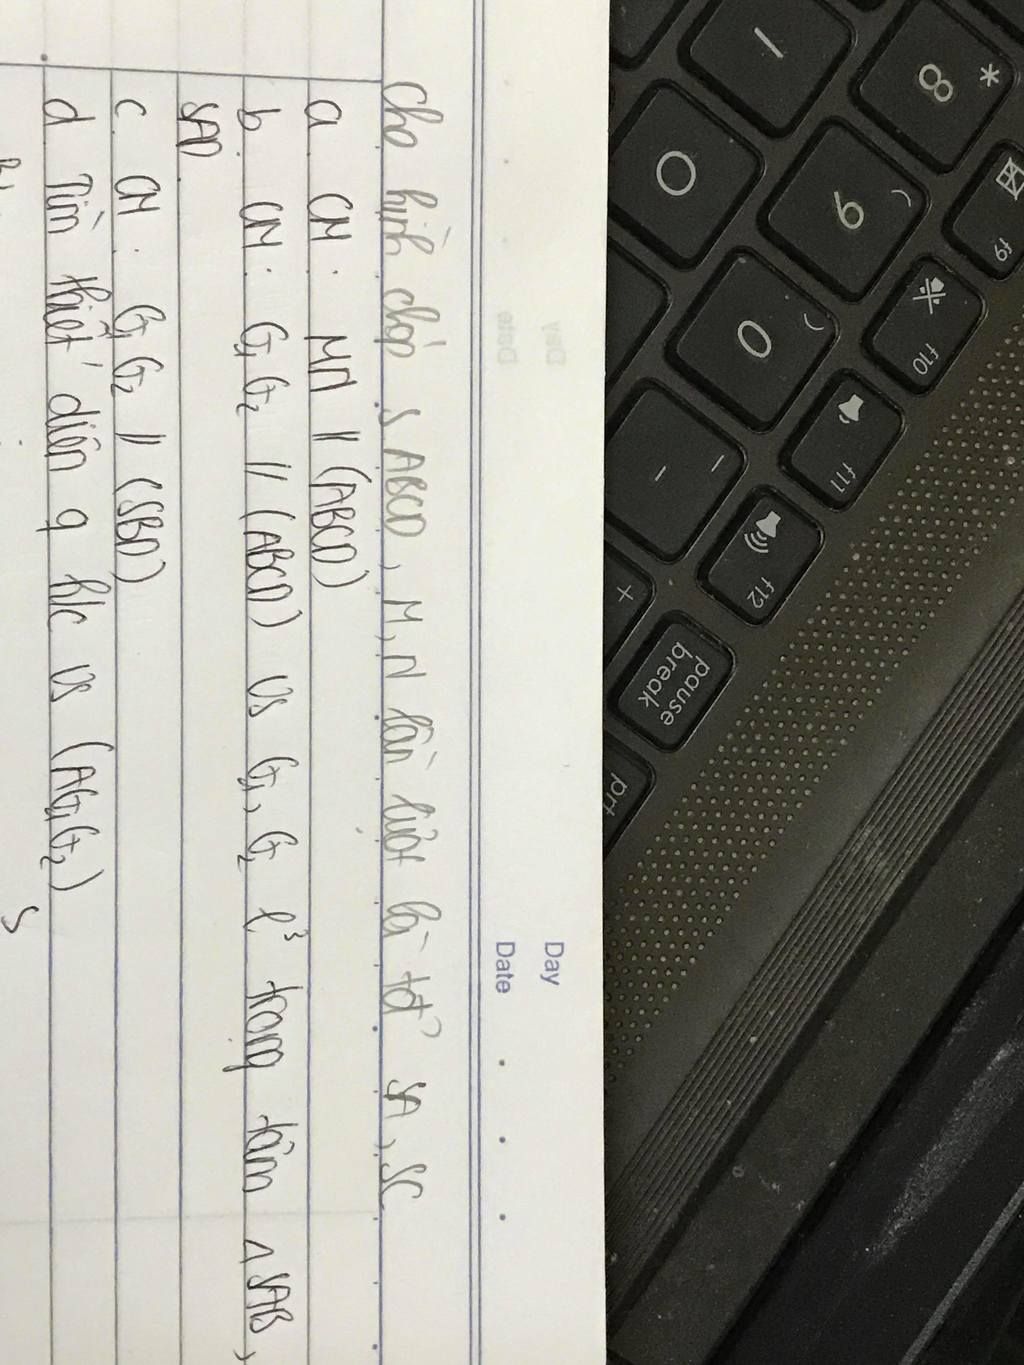 Day
Date
cho hình chóp S ABCD, M, N lần lượt là tđ² SA, SC
a. CM: MN // (ABCD)
b. CM: G₁G₂ // (ABCD) vs G₁, G₂ l³ trọng tâm Δ SAB,
SAD
c. CM: G₁G₂ // (SBD)
d Tìm thiết diện q h/c vs (AG₁G₂)
S
8 *
9 )
0 )
O
I
- _
+
f9
f10
f11
f12
pause
break
prt